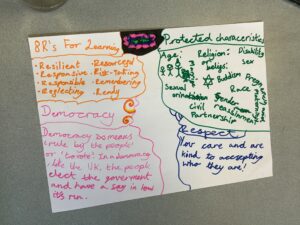 8R's For Learning
• Resilient • Resourceful
• Responsive • Risk-Taking
• Responsible • Remembering
• Reflecting • Ready
Democracy
Democracy means
'rule by the people'
or 'to vote'. In a democracy
like the UK, the people
elect the government
and have a say in how
its run.
Protected characteristics
Age
Religion or
beliefs
Disability
sex
Buddism
Race
Sexual
orientation
Gender
reassignment
civil
Partnership
Respect
care and are
kind to accepting
who they are!